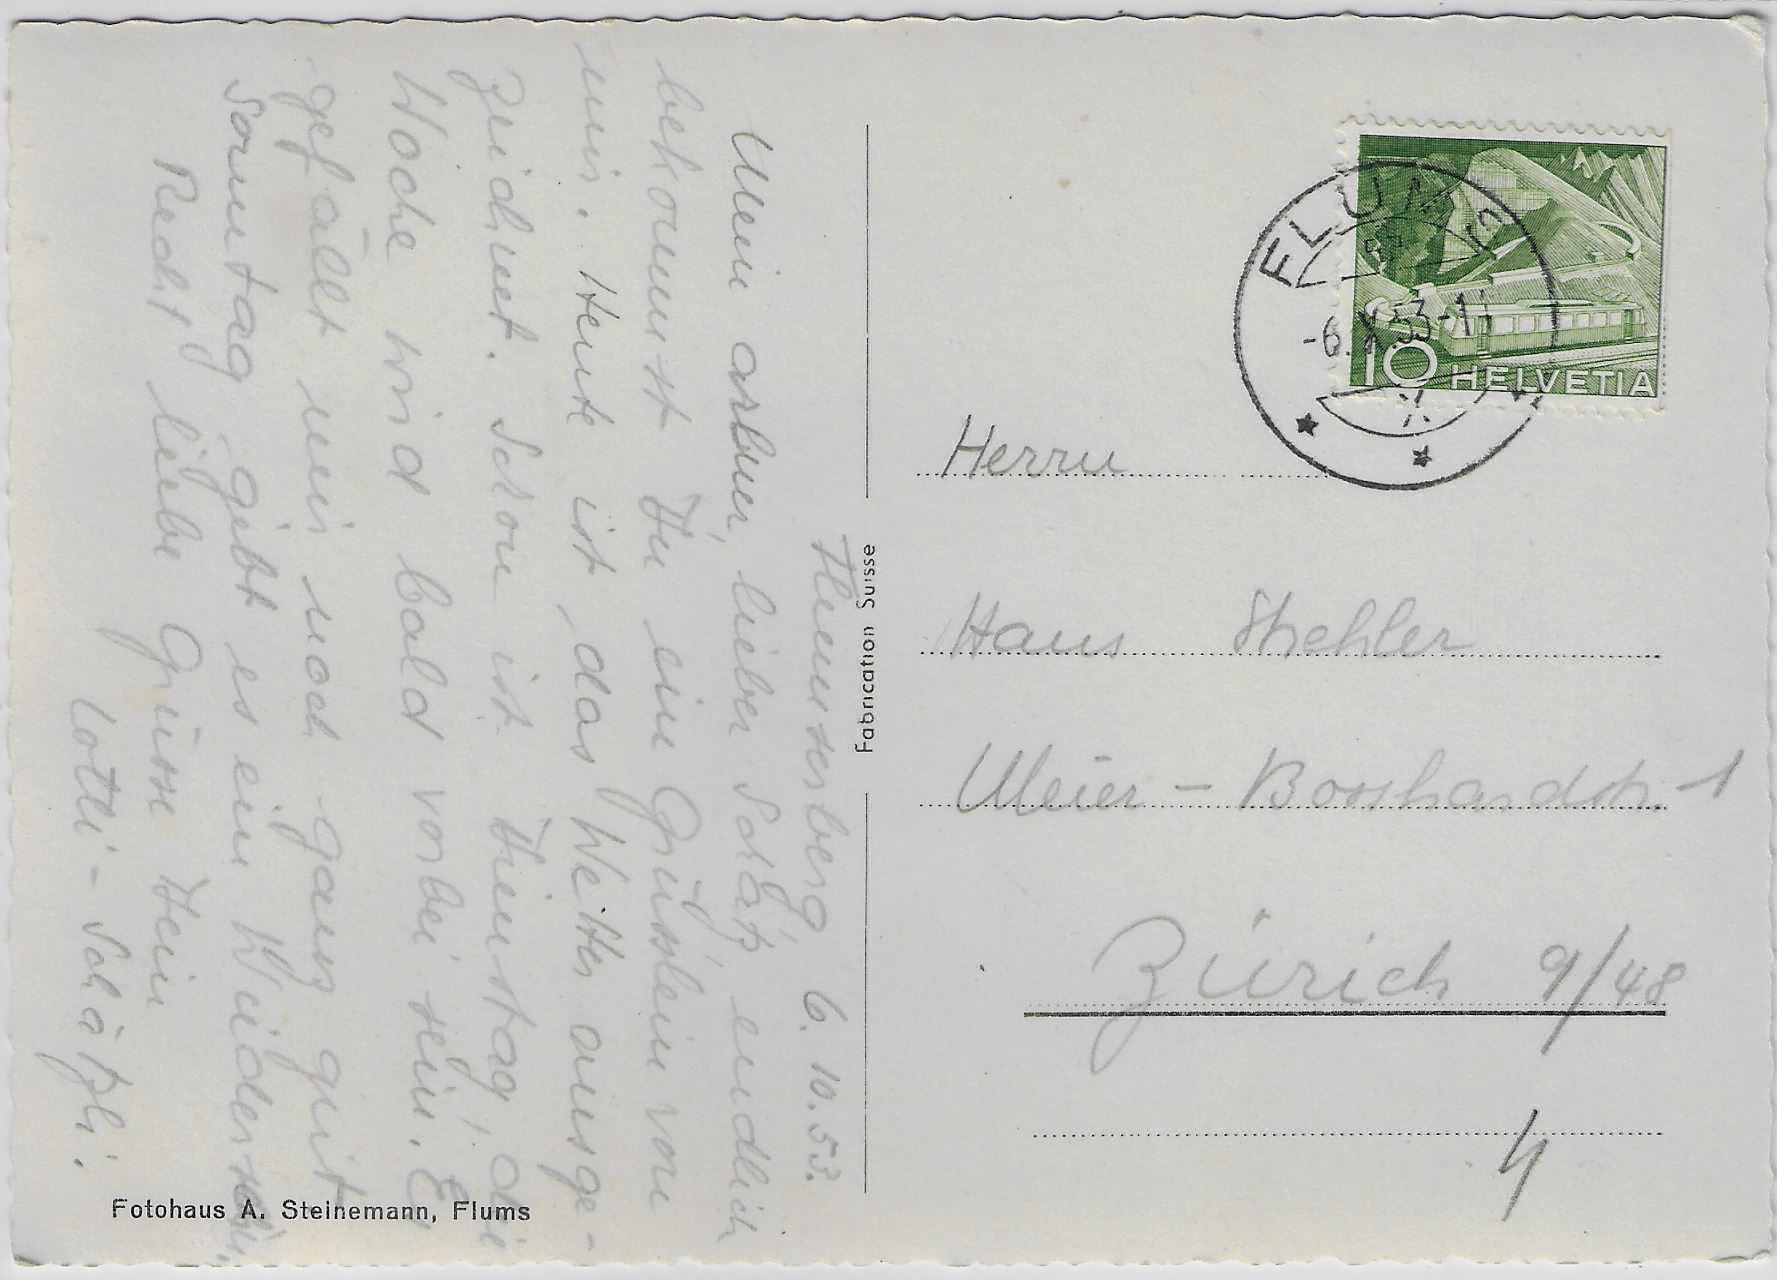 Flumserberg 6.10.53.
Mein armer, lieber Schatz, endlich
bekommst Du ein Grüsslein von
mir. Heute ist das Wetter ausge-
zeichnet. Schon ist Dienstag, die
Woche wird bald vorbei sein. Es
gefällt mir noch ganz gut.
Sonntag gibt es ein Wiedersehn.
Recht liebe Grüsse Dein
Lotti-Schätzli.
Fotohaus A. Steinemann, Flums
Fabrication Suisse
FLUMS
-6.X.53-11
10 HELVETIA
Herrn
Hans Stehler
Meier-Bosshardstr. 1
Zürich 9/48